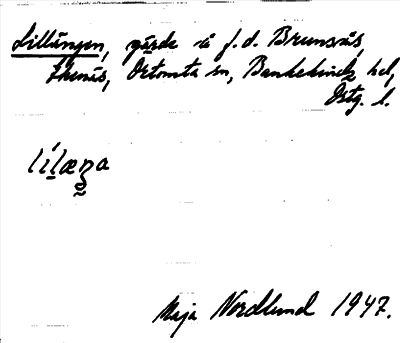 Lillängen, gärde å f. d. Brunsnäs,
Ekenäs, Örtomta sn, Bankekinds hd,
Östg. l.
lílæŋa
Maja Nordlund 1947.